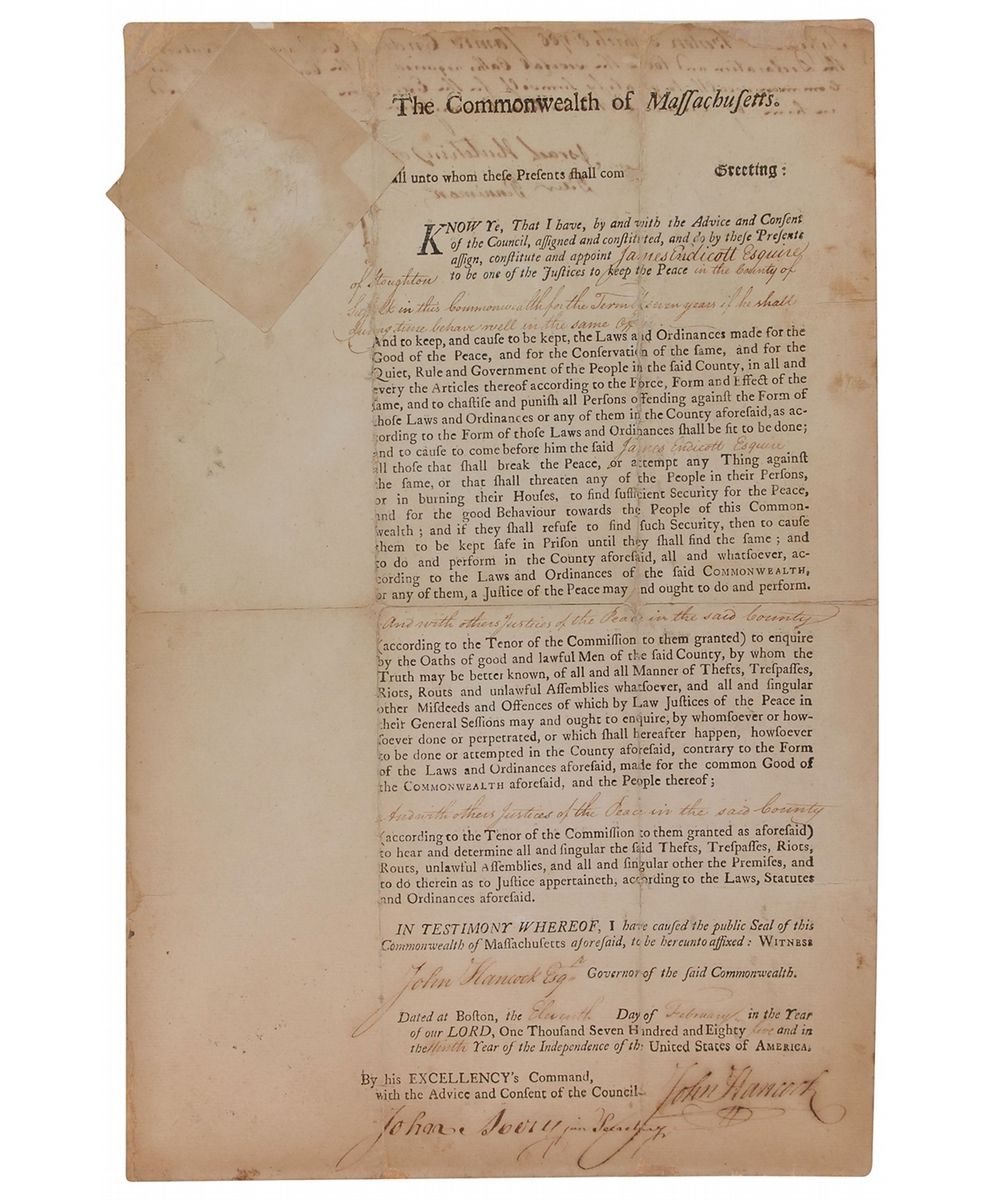 The Commonwealth of Maſſachuſetts.
all unto whom theſe Preſents ſhall com Greeting:
KNOW Ye, That I have, by and with the Advice and Conſent
of the Council, aſſigned and conſtituted, and do by theſe Preſents
aſſign, conſtitute and appoint James Endicott Esquire
of Stoughton to be one of the Juſtices to keep the Peace in the County of
Suffolk in this Commonwealth for the Term of seven years if he shall
during time behave well in the same
And to keep, and cauſe to be kept, the Laws and Ordinances made for the
Good of the Peace, and for the Conſervation of the ſame, and for the
Quiet, Rule and Government of the People in the ſaid County, in all and
every the Articles thereof according to the Force, Form and Effect of the
ſame, and to chaſtiſe and puniſh all Perſons offending againſt the Form of
thoſe Laws and Ordinances or any of them in the County aforeſaid, as ac-
cording to the Form of thoſe Laws and Ordinances ſhall be fit to be done;
and to cauſe to come before him the ſaid James Endicott Esquire
all thoſe that ſhall break the Peace, or attempt any Thing againſt
the ſame, or that ſhall threaten any of the People in their Perſons,
or in burning their Houſes, to find ſufficient Security for the Peace,
and for the good Behaviour towards the People of this Common-
wealth; and if they ſhall refuſe to find ſuch Security, then to cauſe
them to be kept ſafe in Priſon until they ſhall find the ſame; and
to do and perform in the County aforeſaid, all and whatſoever, ac-
cording to the Laws and Ordinances of the ſaid COMMONWEALTH,
or any of them, a Juſtice of the Peace may and ought to do and perform.
And with others Justices of the Peace in the said County
(according to the Tenor of the Commiſſion to them granted) to enquire
by the Oaths of good and lawful Men of the ſaid County, by whom the
Truth may be better known, of all and all Manner of Thefts, Treſpaſſes,
Riots, Routs and unlawful Aſſemblies whatſoever, and all and ſingular
other Miſdeeds and Offences of which by Law Juſtices of the Peace in
their General Seſſions may and ought to enquire, by whomſoever or how-
ſoever done or perpetrated, or which ſhall hereafter happen, howſoever
to be done or attempted in the County aforeſaid, contrary to the Form
of the Laws and Ordinances aforeſaid, made for the common Good of
the COMMONWEALTH aforeſaid, and the People thereof;
And with others Justices of the Peace in the said County
(according to the Tenor of the Commiſſion to them granted as aforeſaid)
to hear and determine all and ſingular the ſaid Thefts, Treſpaſſes, Riots,
Routs, unlawful Aſſemblies, and all and ſingular other the Premiſes, and
to do therein as to Juſtice appertaineth, according to the Laws, Statutes
and Ordinances aforeſaid.
IN TESTIMONY WHEREOF, I have cauſed the public Seal of this
Commonwealth of Maſſachuſetts aforeſaid, to be hereunto affixed: WITNESS
John Hancock Esqr Governor of the ſaid Commonwealth.
Dated at Boſton, the Eleventh Day of February in the Year
of our LORD, One Thouſand Seven Hundred and Eighty five and in
the Ninth Year of the Independence of the United States of AMERICA.
By his EXCELLENCY's Command,
with the Advice and Conſent of the Council.
John Hancock
John Avery jun Secretary